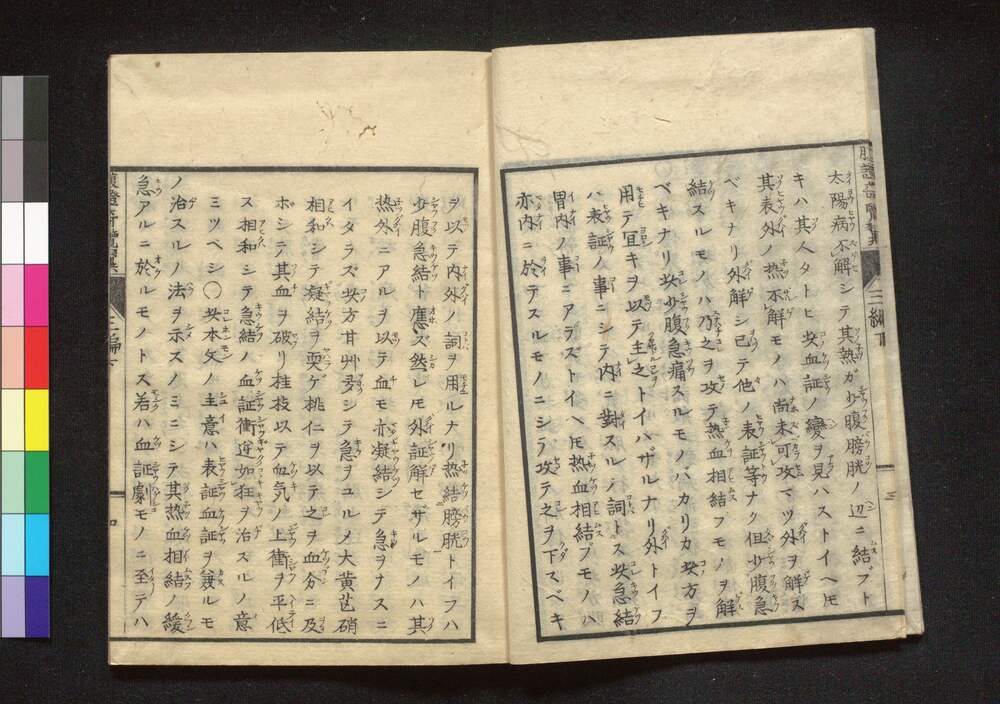 太陽病不解シテ其熱ガ少腹膀胱ノ辺ニ結ブト
キハ其人タトヒ此血証ノ變ヲ見ハストイヘモ
其表外ノ熱不解モノハ尚未可攻マヅ外ヲ解ス
ベキナリ外解シ已テ他ノ表証等ナク但少腹急
結スルモノハ乃之ヲ攻テ熱血相結ブモノヲ解
ベキナリ此少腹急痛スルモノバカリカ此方ヲ
用テ宜キヲ以テ主之トイハザルナリ外トイフ
ハ表証ノ事ニシテ内ニ對スルノ詞トス此急結
胃内ノ事ニアラズトイヘモ熱血相結ブモノハ
亦内ニ於テスルモノニシテ攻テ之ヲ下スベキ
ヲ以テ内外ノ詞ヲ用ルナリ熱結膀胱トイフハ
少腹急結ト應ズ然レモ外証解セザルモノハ其
熱外ニアルヲ以テ血モ亦凝結シテ急ヲナスニ
イタラズ此方甘艸多シテ急ヲユルメ大黄芒硝
相和シテ凝結ヲ耎ゲ桃仁ヲ以テ之ヲ血分ニ及
ホシテ其血ヲ破リ桂枝以テ血気ノ上衝ヲ平低
ス相和シテ急結ノ血証衝逆如狂ヲ治スルノ意
ミツベシ〇此本文ノ主意ハ表証血証ヲ兼ルモ
ノ治スルノ法ヲ示スノミニシテ其熱血相結ノ緩
急アルニ於ルモノトス若ハ血証劇モノニ至テハ
腹證奇覽翼
三編下
三
四